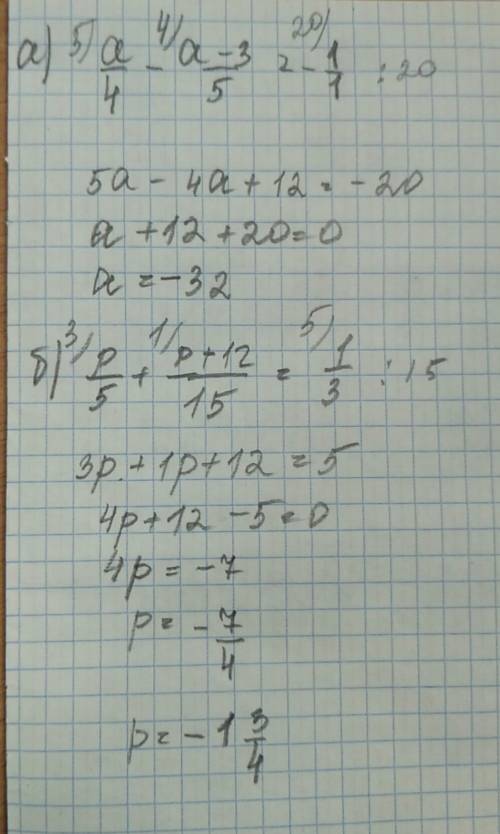 а) 5) a/4 - 4) a-3/5 = 20) -1/1 :20
5a - 4a + 12 = -20
a + 12 + 20 = 0
a = -32
б) 3) p/5 + 1) p+12/15 = 5) 1/3 :15
3p + 1p + 12 = 5
4p + 12 - 5 = 0
4p = -7
p = -7/4
p = -1 3/4